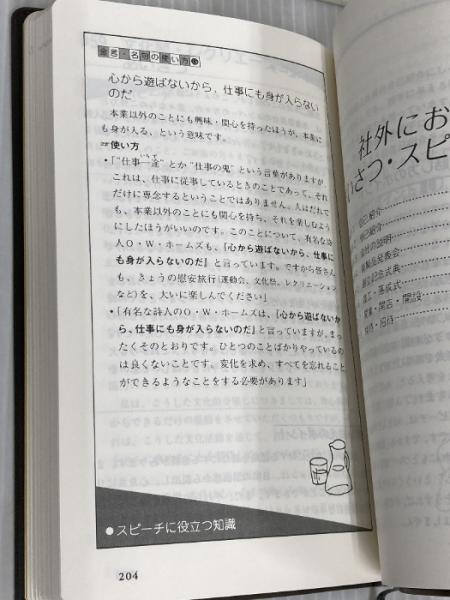 金言・名句の使い方
心から遊ばないから、仕事にも身が入らない
のだ
本業以外のことにも興味・関心を持ったほうが、本業に
も身が入る、という意味です。
☞使い方
•「"仕事一途"とか"仕事の鬼"という言葉がありますが、
これは、仕事に従事しているときのことであって、それ
だけに専念するということではありません。人はだれで
も、本業以外のことにも関心を持ち、それを楽しむよう
にしたほうがいいのです。このことについて、有名な詩
人O・W・ホームズも、『心から遊ばないから、仕事に
も身が入らないのだ』と言っています。ですから皆さん
も、きょうの慰安旅行(運動会、文化祭、レクリエーション
など)を、大いに楽しんでください」
•「有名な詩人のO・W・ホームズは、『心から遊ばないか
ら、仕事にも身が入らないのだ』と言っていますが、まっ
たくそのとおりです。ひとつのことばかりやっているの
は良くないことです。変化を求め、すべてを忘れること
ができるようなことをする必要があります」
●スピーチに役立つ知識
204
社外にお
いさつ・スピ
自己紹介
会社の説明
新製品発表会
創立記念式典
竣工・落成式
開業・開店・開設
接待・招待